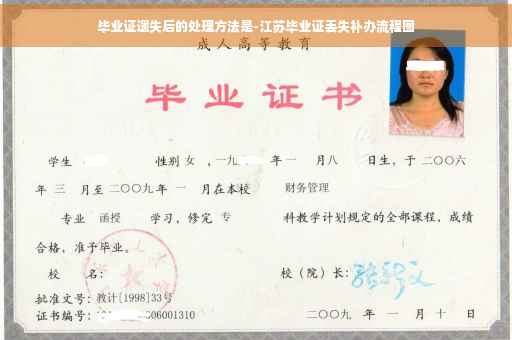 毕业证遗失后的处理方法是-江苏毕业证丢失补办流程图
成人高等教育
毕业证书
学生 性别 女 ,一九 年 一 月八 日生,于 二〇〇六
年 三 月至 二〇〇九 年 一 月在本校 财务管理
专业 函授 学习,修完 专 科教学计划规定的全部课程,成绩
合格,准予毕业。
校 名: 校(院)长:
批准文号:教计[1998]33号
证书编号: 06001310 二〇〇九 年 一 月 十 日